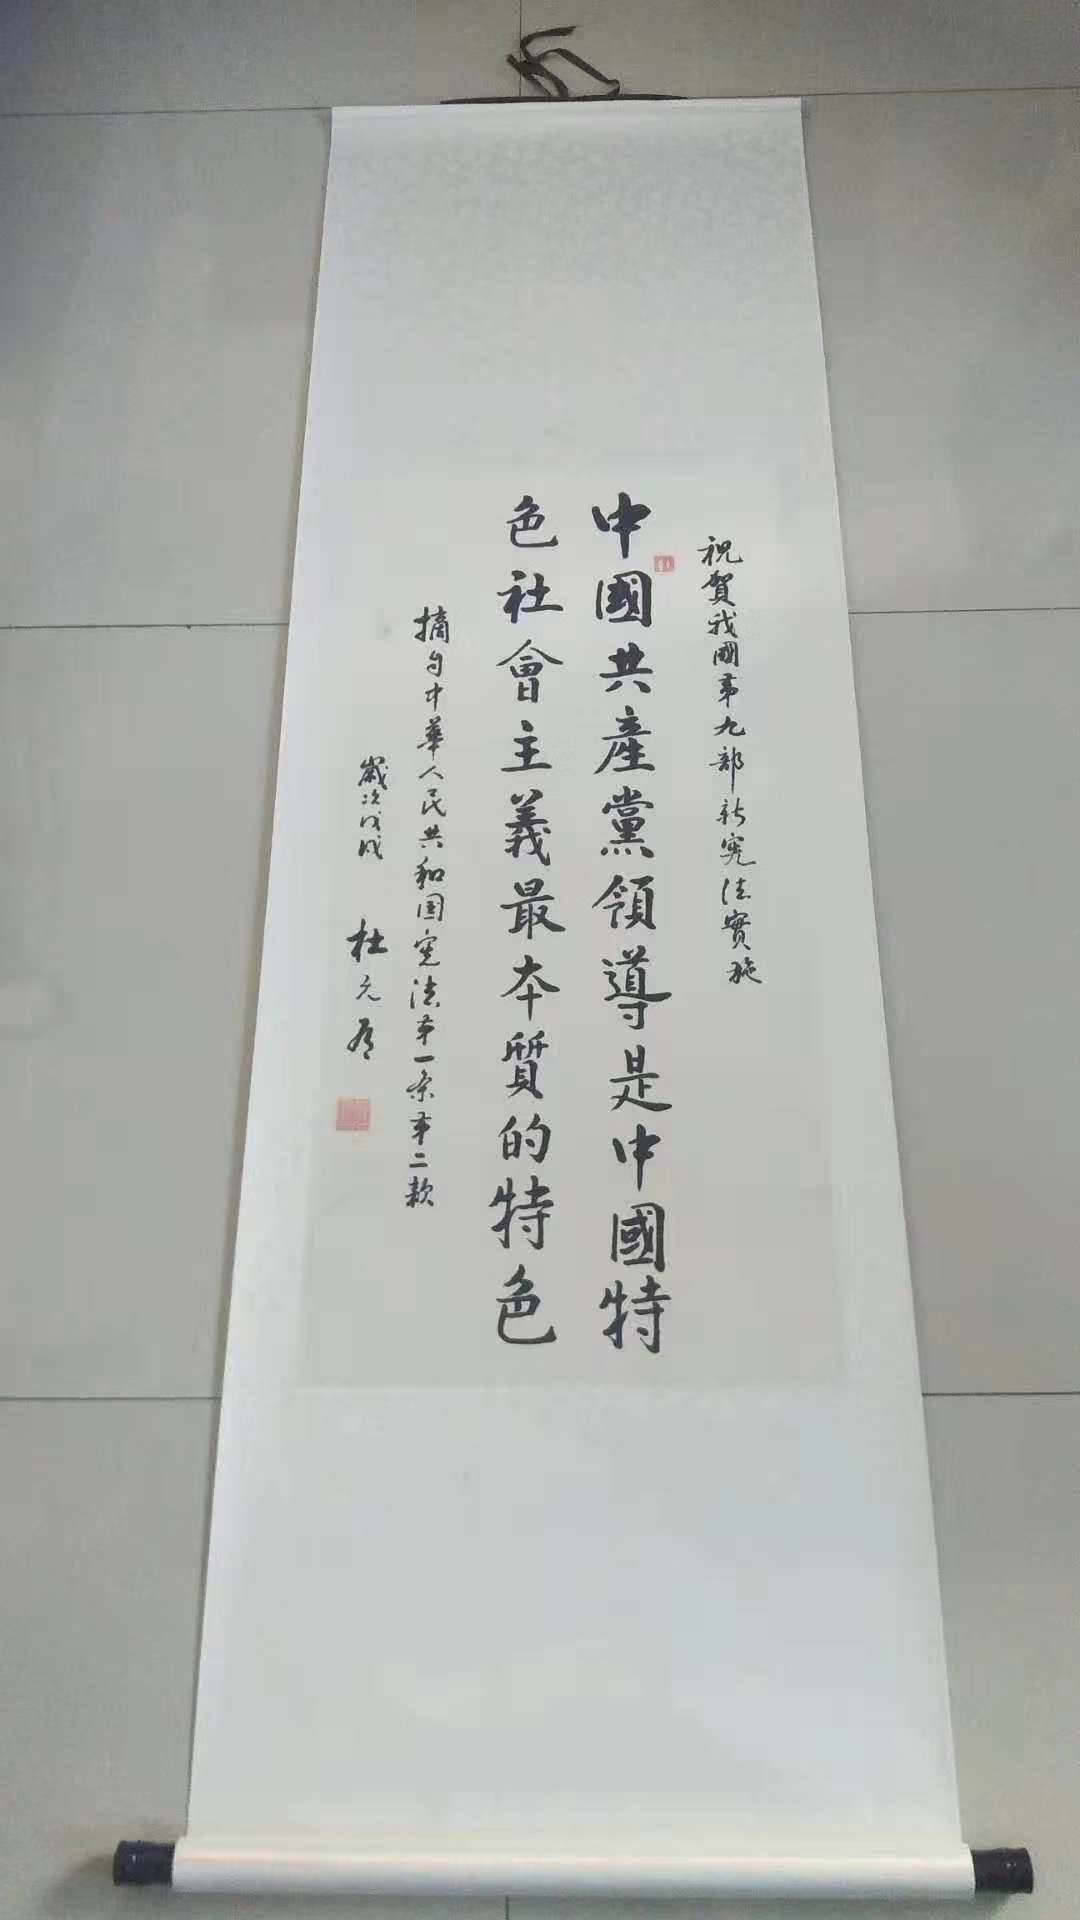 祝賀我國第九部新宪法實施
中國共產黨領導是中國特
色社會主義最本質的特色
摘自中華人民共和国宪法第一条第二款
歲次戊戌
杜元